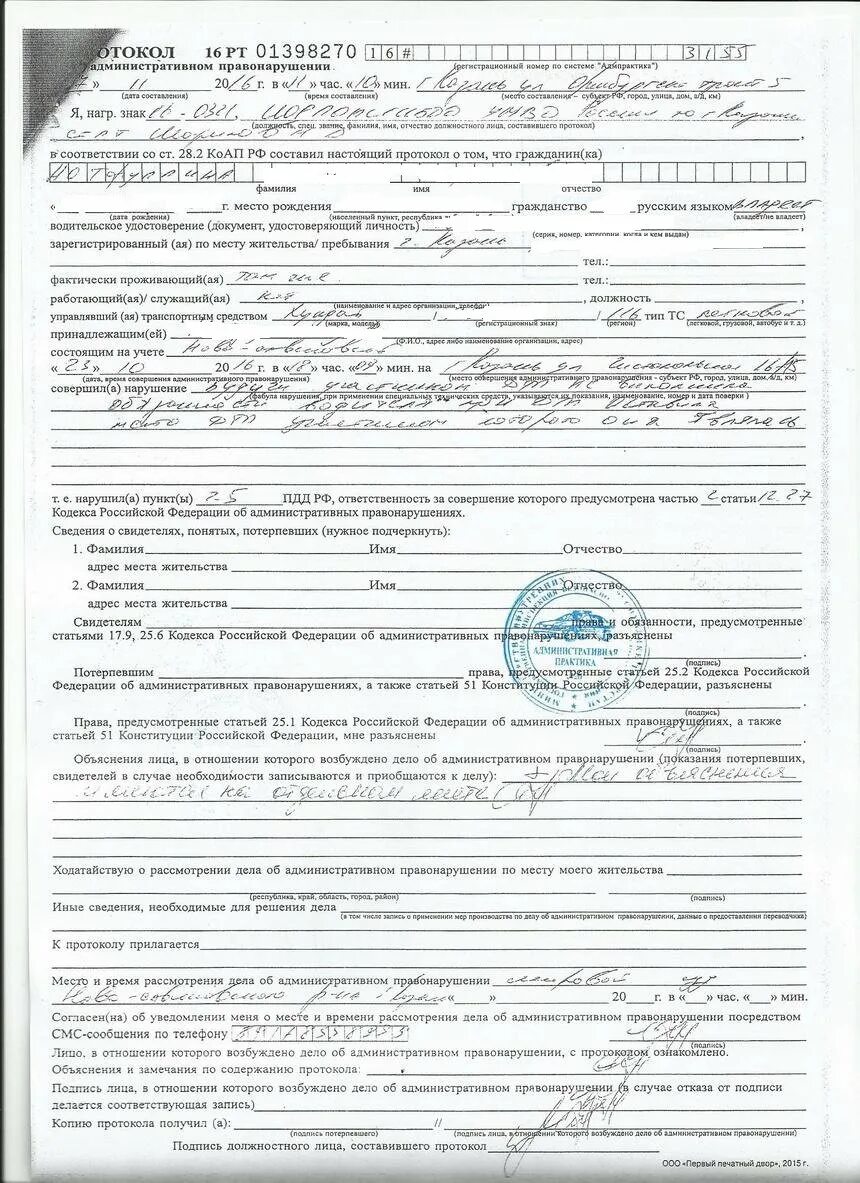 ПРОТОКОЛ 16 РТ 01398270 16# 3155
административном правонарушении (регистрационный номер по системе "Адмпрактика")
» 11 2016 г. в «11» час. «10» мин. г Казань ул Оренбургский тракт 5
(дата составления) (время составления) (место составления – субъект РФ, город, улица, дом, а/д, км)
Я, нагр. знак 16-0321, России по г Казани
(должность, спец. звание, фамилия, имя, отчество должностного лица, составившего протокол)
в соответствии со ст. 28.2 КоАП РФ составил настоящий протокол о том, что гражданин(ка)
фамилия имя отчество
« г. место рождения гражданство русским языком владеет
(дата рождения) (населенный пункт, республика (владеет/не владеет)
водительское удостоверение (документ, удостоверяющий личность)
(серия, номер, категории, когда и кем выдан)
зарегистрированный (ая) по месту жительства/ пребывания г. Казань
тел.:
фактически проживающий(ая) там же тел.:
работающий(ая)/ служащий(ая) , должность ,
(наименование и адрес организации, телефон)
управлявший (ая) транспортным средством Хундай / / 116 тип ТС легковой
(марка, модель) (регистрационный знак) (регион) (легковой, грузовой, автобус и т. д.)
принадлежащим(ей)
(Ф.И.О., адрес либо наименование организации, адрес)
состоящим на учете
« 23 » 10 2016 г. в «18» час. «09» мин. на г Казань ул Чистопольская
(дата, время совершения административного правонарушения) (место совершения административного правонарушения - субъект РФ, город, улица, дом, б/д, км)
совершил(а) нарушение будучи участником ДТП
(фабула нарушения, при применении специальных технических средств, указываются их показания, наименование, номер и дата поверки )
обязанности водителя при ДТП оставила
место ДТП участником которого она являлась
т. е. нарушил(а) пункт(ы) 2-5 ПДД РФ, ответственность за совершение которого предусмотрена частью 2 статьи 12.27
Кодекса Российской Федерации об административных правонарушениях.
Сведения о свидетелях, понятых, потерпевших (нужное подчеркнуть):
1. Фамилия Имя Отчество
адрес места жительства
2. Фамилия Имя Отчество
адрес места жительства
Свидетелям права и обязанности, предусмотренные
статьями 17.9, 25.6 Кодекса Российской Федерации об административных правонарушениях, разъяснены
АДМИНИСТРАТИВНАЯ
ПРАКТИКА
(подпись)
Потерпевшим права, предусмотренные статьей 25.2 Кодекса Российской
Федерации об административных правонарушениях, а также статьей 51 Конституции Российской Федерации, разъяснены
(подпись)
Права, предусмотренные статьей 25.1 Кодекса Российской Федерации об административных правонарушениях, а также
статьей 51 Конституции Российской Федерации, мне разъяснены
(подпись)
Объяснения лица, в отношении которого возбуждено дело об административном правонарушении (показания потерпевших,
свидетелей в случае необходимости записываются и приобщаются к делу): мои объяснения
имеются на отдельном листе
Ходатайствую о рассмотрении дела об административном правонарушении по месту моего жительства
(республика, край, область, город, район) (подпись)
Иные сведения, необходимые для решения дела
(в том числе запись о применении мер производства по делу об административном правонарушении, данные о предоставления переводчика)
К протоколу прилагается
Место и время рассмотрения дела об административном правонарушении мировой суд
Ново-Савиновского р-на г Казани « » 20 г. в « » час. « » мин.
Согласен(на) об уведомлении меня о месте и времени рассмотрения дела об административном правонарушении посредством
СМС-сообщения по телефону
(подпись)
Лицо, в отношении которого возбуждено дело об административном правонарушении, с протоколом ознакомлено.
Объяснения и замечания по содержанию протокола:
Подпись лица, в отношении которого возбуждено дело об административном правонарушении (в случае отказа от подписи
делается соответствующая запись)
Копию протокола получил (а): //
(подпись потерпевшего) (подпись лица, в отношении которого возбуждено дело об административном правонарушении)
Подпись должностного лица, составившего протокол
ООО «Первый печатный двор», 2015 г.